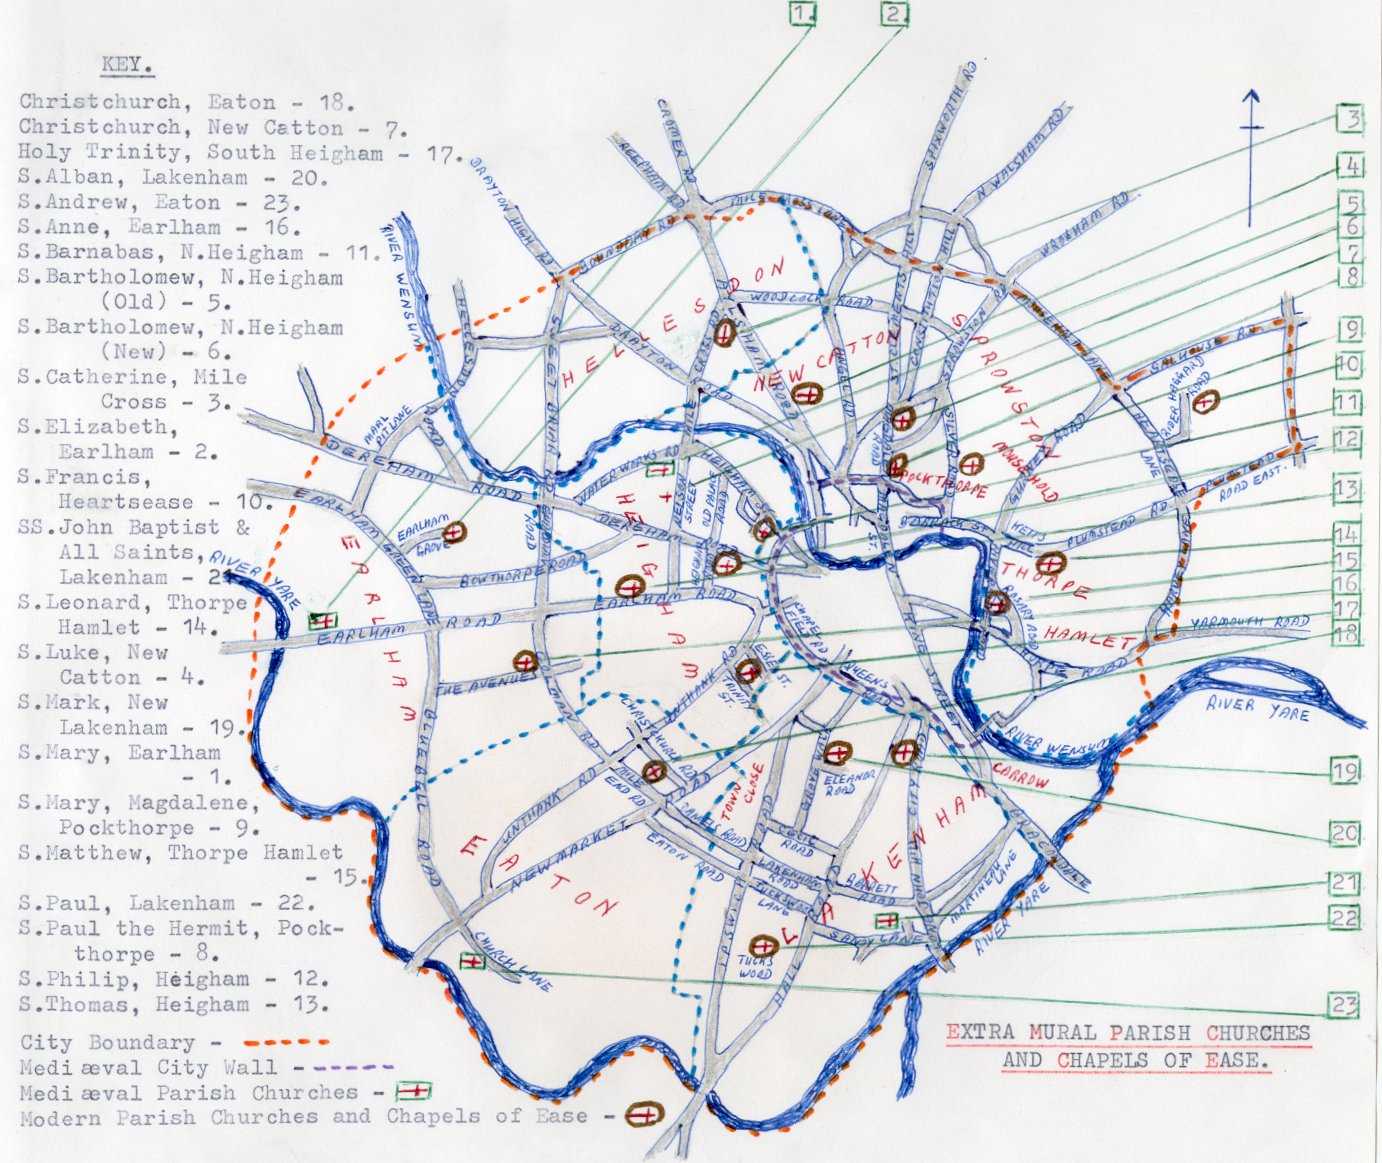 KEY.
Christchurch, Eaton - 18.
Christchurch, New Catton - 7.
Holy Trinity, South Heigham - 17.
S.Alban, Lakenham - 20.
S.Andrew, Eaton - 23.
S.Anne, Earlham - 16.
S.Barnabas, N.Heigham - 11.
S.Bartholomew, N.Heigham
(Old) - 5.
S.Bartholomew, N.Heigham
(New) - 6.
S.Catherine, Mile
Cross - 3.
S.Elizabeth,
Earlham - 2.
S.Francis,
Heartsease - 10.
SS.John Baptist &
All Saints,
Lakenham - 21
S.Leonard, Thorpe
Hamlet - 14.
S.Luke, New
Catton - 4.
S.Mark, New
Lakenham - 19.
S.Mary, Earlham
- 1.
S.Mary, Magdalene,
Pockthorpe - 9.
S.Matthew, Thorpe Hamlet
- 15.
S.Paul, Lakenham - 22.
S.Paul the Hermit, Pock-
thorpe - 8.
S.Philip, Heigham - 12.
S.Thomas, Heigham - 13.
City Boundary -
Mediæval City Wall -
Mediæval Parish Churches -
Modern Parish Churches and Chapels of Ease -
1.
2.
3
4
5
6
7
8
9
10
11
12
13
14
15
16
17
18
19
20
21
22
23
CROMER RD
REEPHAM RD
DRAYTON HIGH RD
BOUNDARY RD
MILE CROSS LANE
SPIXWORTH RD
N WALSHAM RD
WROXHAM RD
RIVER WENSUM
HELLESDON
WOODCOCK ROAD
DRAYTON RD
AYLSHAM ROAD
NEW CATTON
SPROWSTON
SALHOUSE RD
RIDER HAGGARD
ROAD
HEARTSEASE
LANE
PLUMSTEAD
ROAD EAST.
MARL
PIT LANE
DEREHAM ROAD
WATERWORKS RD
NELSON
STREET
OLD PALACE
ROAD
HEIGHAM
POCKTHORPE
MOUSEHOLD
PLUMSTEAD RD
EARLHAM GREEN LANE
EARLHAM
GROVE
BOWTHORPE ROAD
DEREHAM
HEIGHAM
RIVER YARE
EARLHAM
EARLHAM ROAD
EARLHAM ROAD
THORPE
HAMLET
ROSARY ROAD
YARMOUTH ROAD
CHAPEL
FIELD RD
QUEENS
THE AVENUES
COLMAN RD
UNTHANK RD
TRINITY
ST.
ESSEX
ST.
CHRISTCHURCH ROAD
KING STREET
RIVER WENSUM
RIVER YARE
CARROW
BLUEBELL ROAD
UNTHANK RD
MILE
END RD
TOWN
CLOSE
ELEANOR
ROAD
GROVE WALK
CITY RD
DANIELS ROAD
EATON ROAD
NEWMARKET
EATON
CECIL
ROAD
LAKENHAM
ROAD
TUCKSWOOD
LANE
BARRETT
ROAD
LAKENHAM
MARTINEAU
LANE
BRACONDALE
RIVER YARE
SANDY LANE
CHURCH LANE
IPSWICH
TUCKS
WOOD
HALL
EXTRA MURAL PARISH CHURCHES
AND CHAPELS OF EASE.